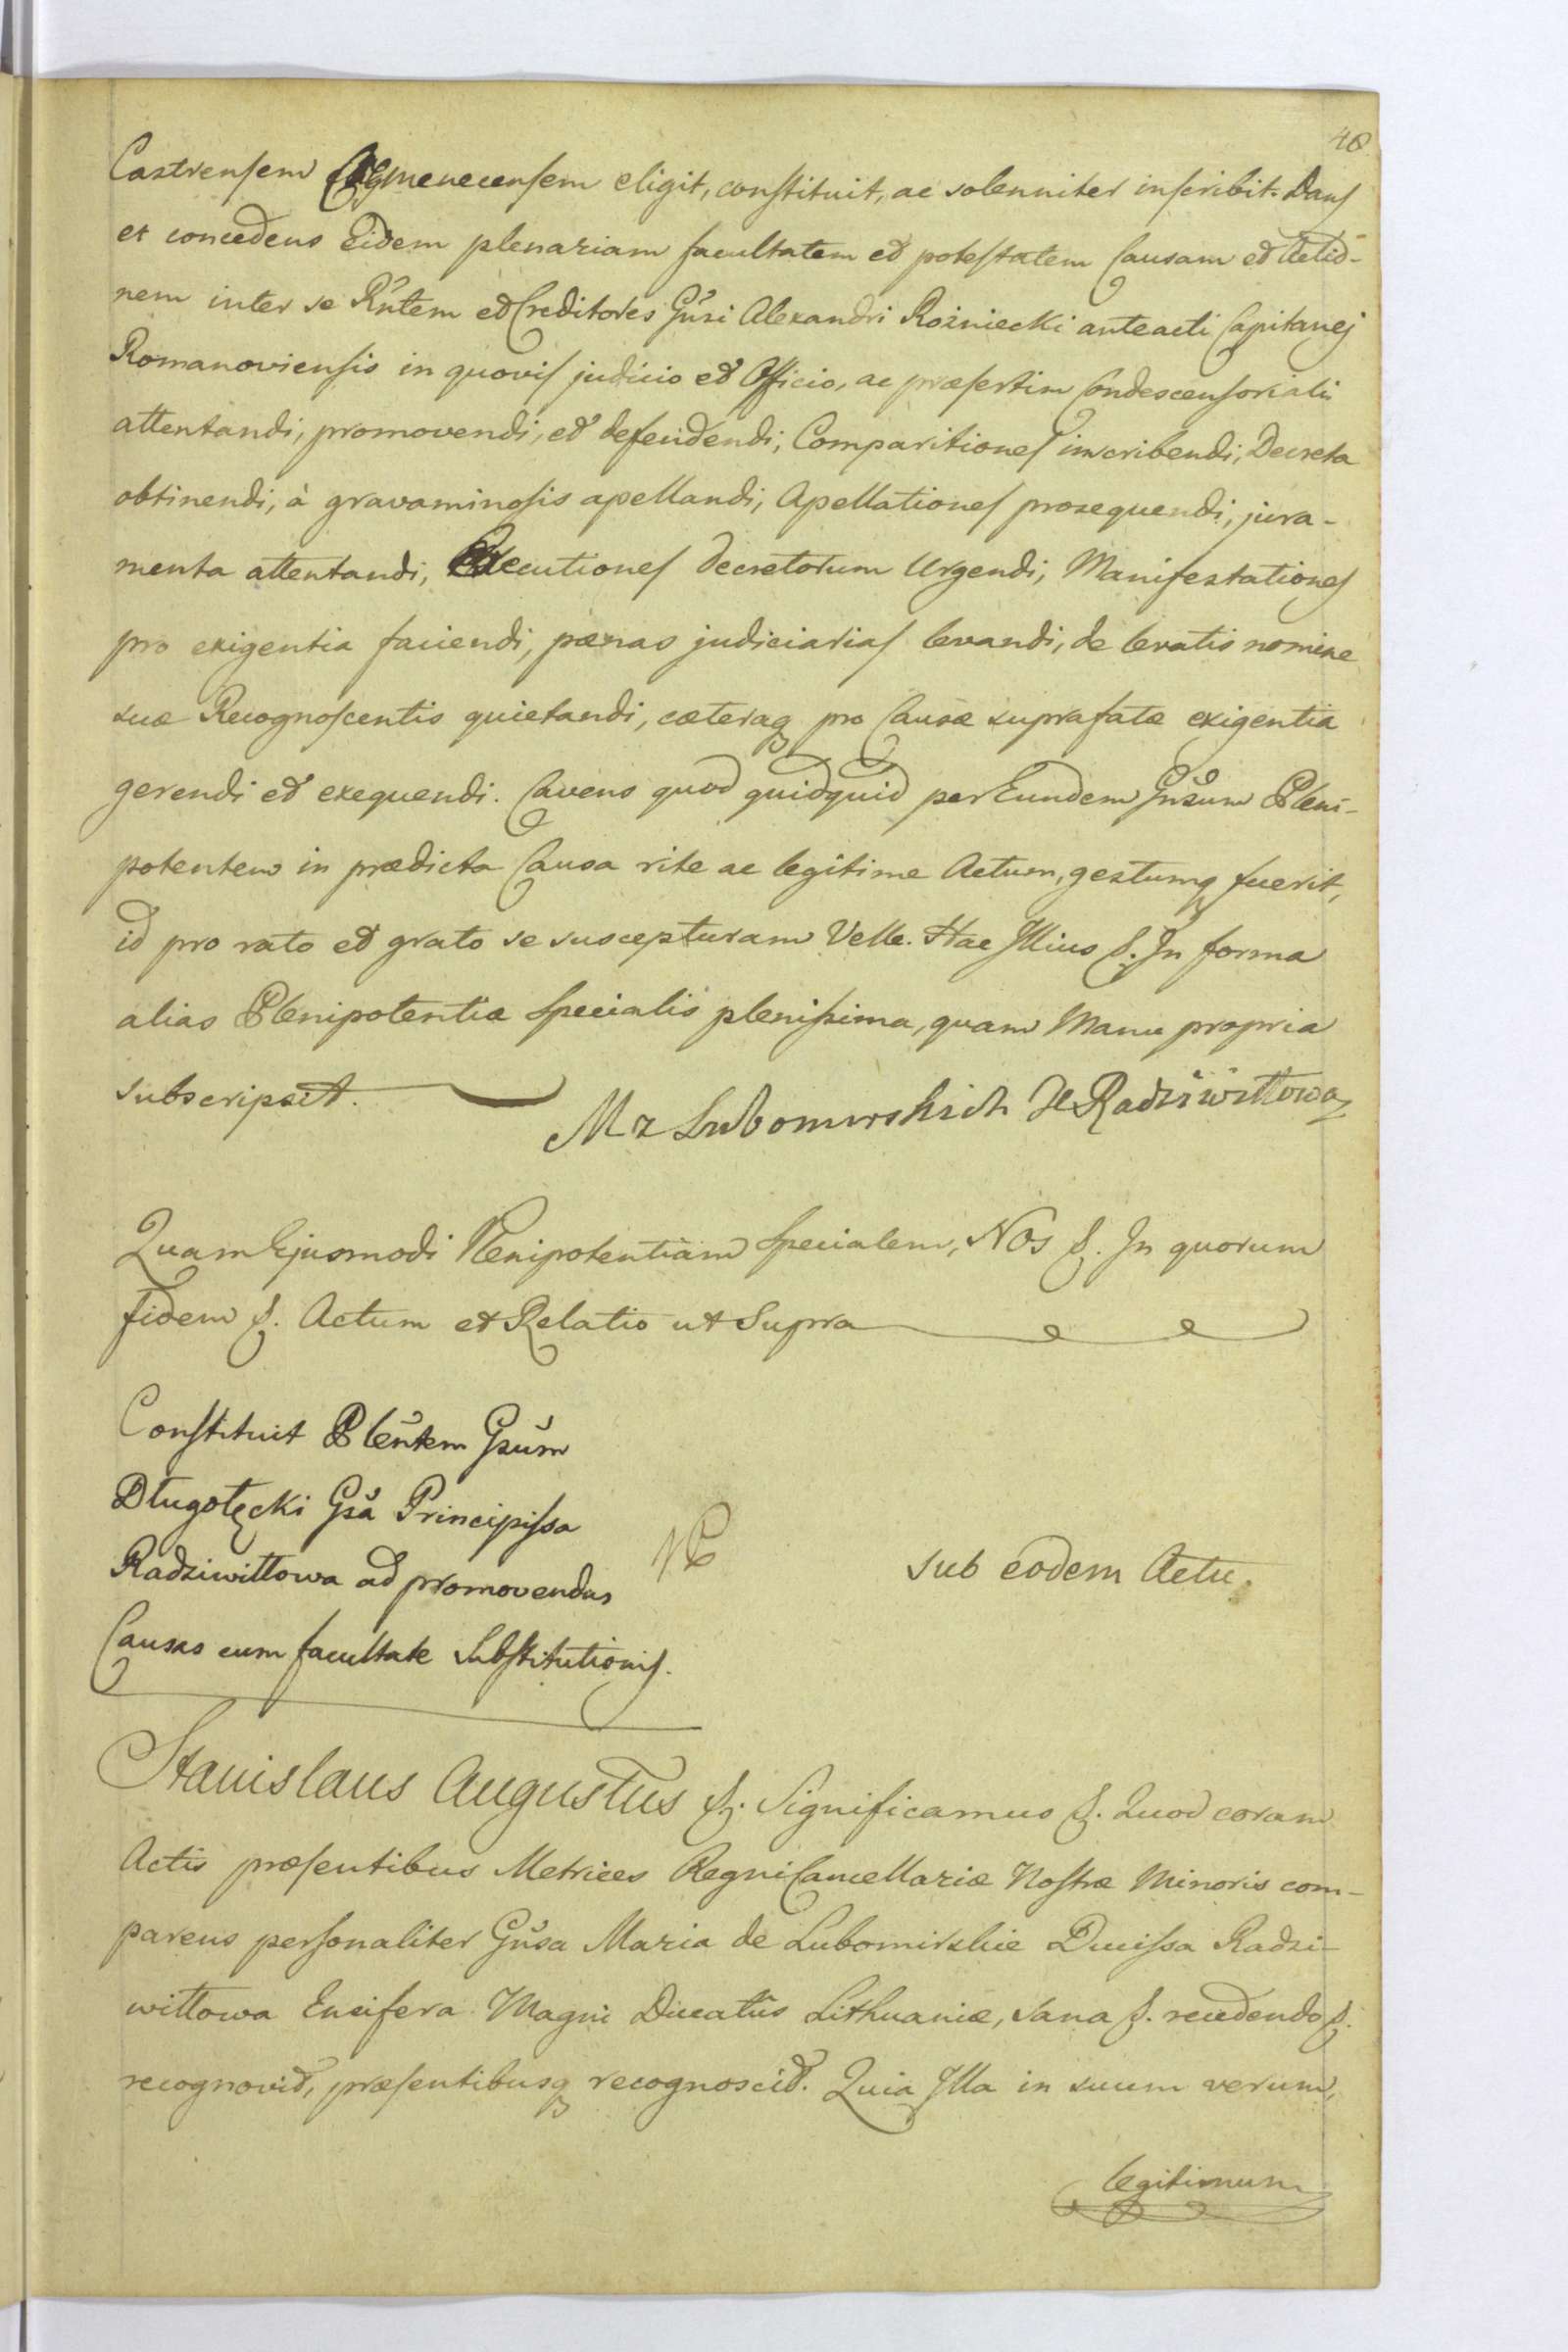 48
Castrensem Cremenecensem eligit, constituit, ac solenniter inscribit. Dans
et concedens Eidem plenariam facultatem et potestatem Causam et Actio-
nem inter se Rñtem et Creditores Gñsi Alexandri Rożniecki anteacti Capitanej
Romanoviensis in quovis judicio et Officio, ac præsertim Condescensoriali
attentandi, promovendi, et defendendi, Comparitiones inscribendi, Decreta
obtinendi, à gravaminosis apellandi, Apellationes prosequendi, jura-
menta attentandi, Executiones Decretorum Urgendi, Manifestationes
pro exigentia faciendi, pænas judiciarias levandi, de levatis nomine
suæ Recognoscentis quietandi, cæteraq pro Causæ suprafatæ exigentia
gerendi et exequendi. Cavens quod quidquid per Eundem Gñsum Pleni-
potentem in prædicta Causa rite ac legitime Actum, gestumq fuerit,
id pro rato et grato se suscepturam Velle. Hac Illius &. In forma
alias Plenipotentia Specialis plenissima, quam Manu propria
subscripsit. M z Lubomirskich X Radziwiłłowa
Quam Ejusmodi Plenipotentiam Specialem, Nos &. In quorum
fidem &. Actum et Relatio ut Supra
Constituit Pleñtem Gsũm
Długołęcki Gsã Principissa
Radziwiłłowa ad promovendas
Causas cum facultate Substitutionis.
sub eodem Actu.
Stanislaus Augustus &. Significamus &. Quod coram
Actis præsentibus Metrices Regni Cancellariæ Nostræ Minoris com-
parens personaliter Gñsa Maria de Lubomirskie Ducissa Radzi-
wiłłowa Ensifera Magni Ducatûs Lithuaniæ, sana &. recedendo &.
recognovit, præsentibusq recognoscit. Quia Illa in suum verum,
legitimum